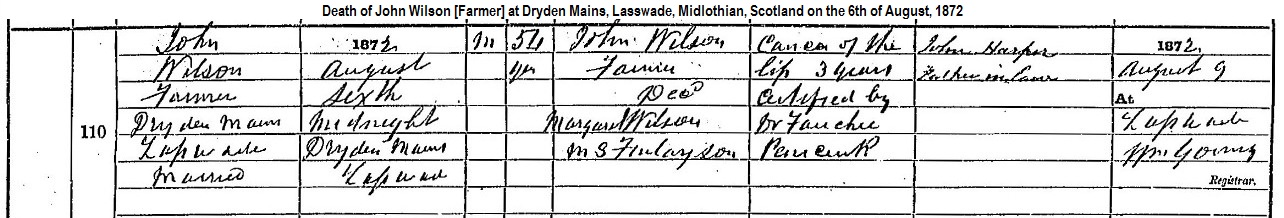 Death of John Wilson [Farmer] at Dryden Mains, Lasswade, Midlothian, Scotland on the 6th of August, 1872
110
John
Wilson
Farmer
Dryden Mains
Lasswade
Married
1872
August
Sixth
Midnight
Dryden Mains
Lasswade
M
54
yrs
John Wilson
Farmer
Decd
Margaret Wilson
M S Finlayson
Cancer of the
lip 3 years
Certified by
Dr
Penicuik
John Harper
Father in law
1872
August 9
At
Lasswade
Wm Young
Registrar.